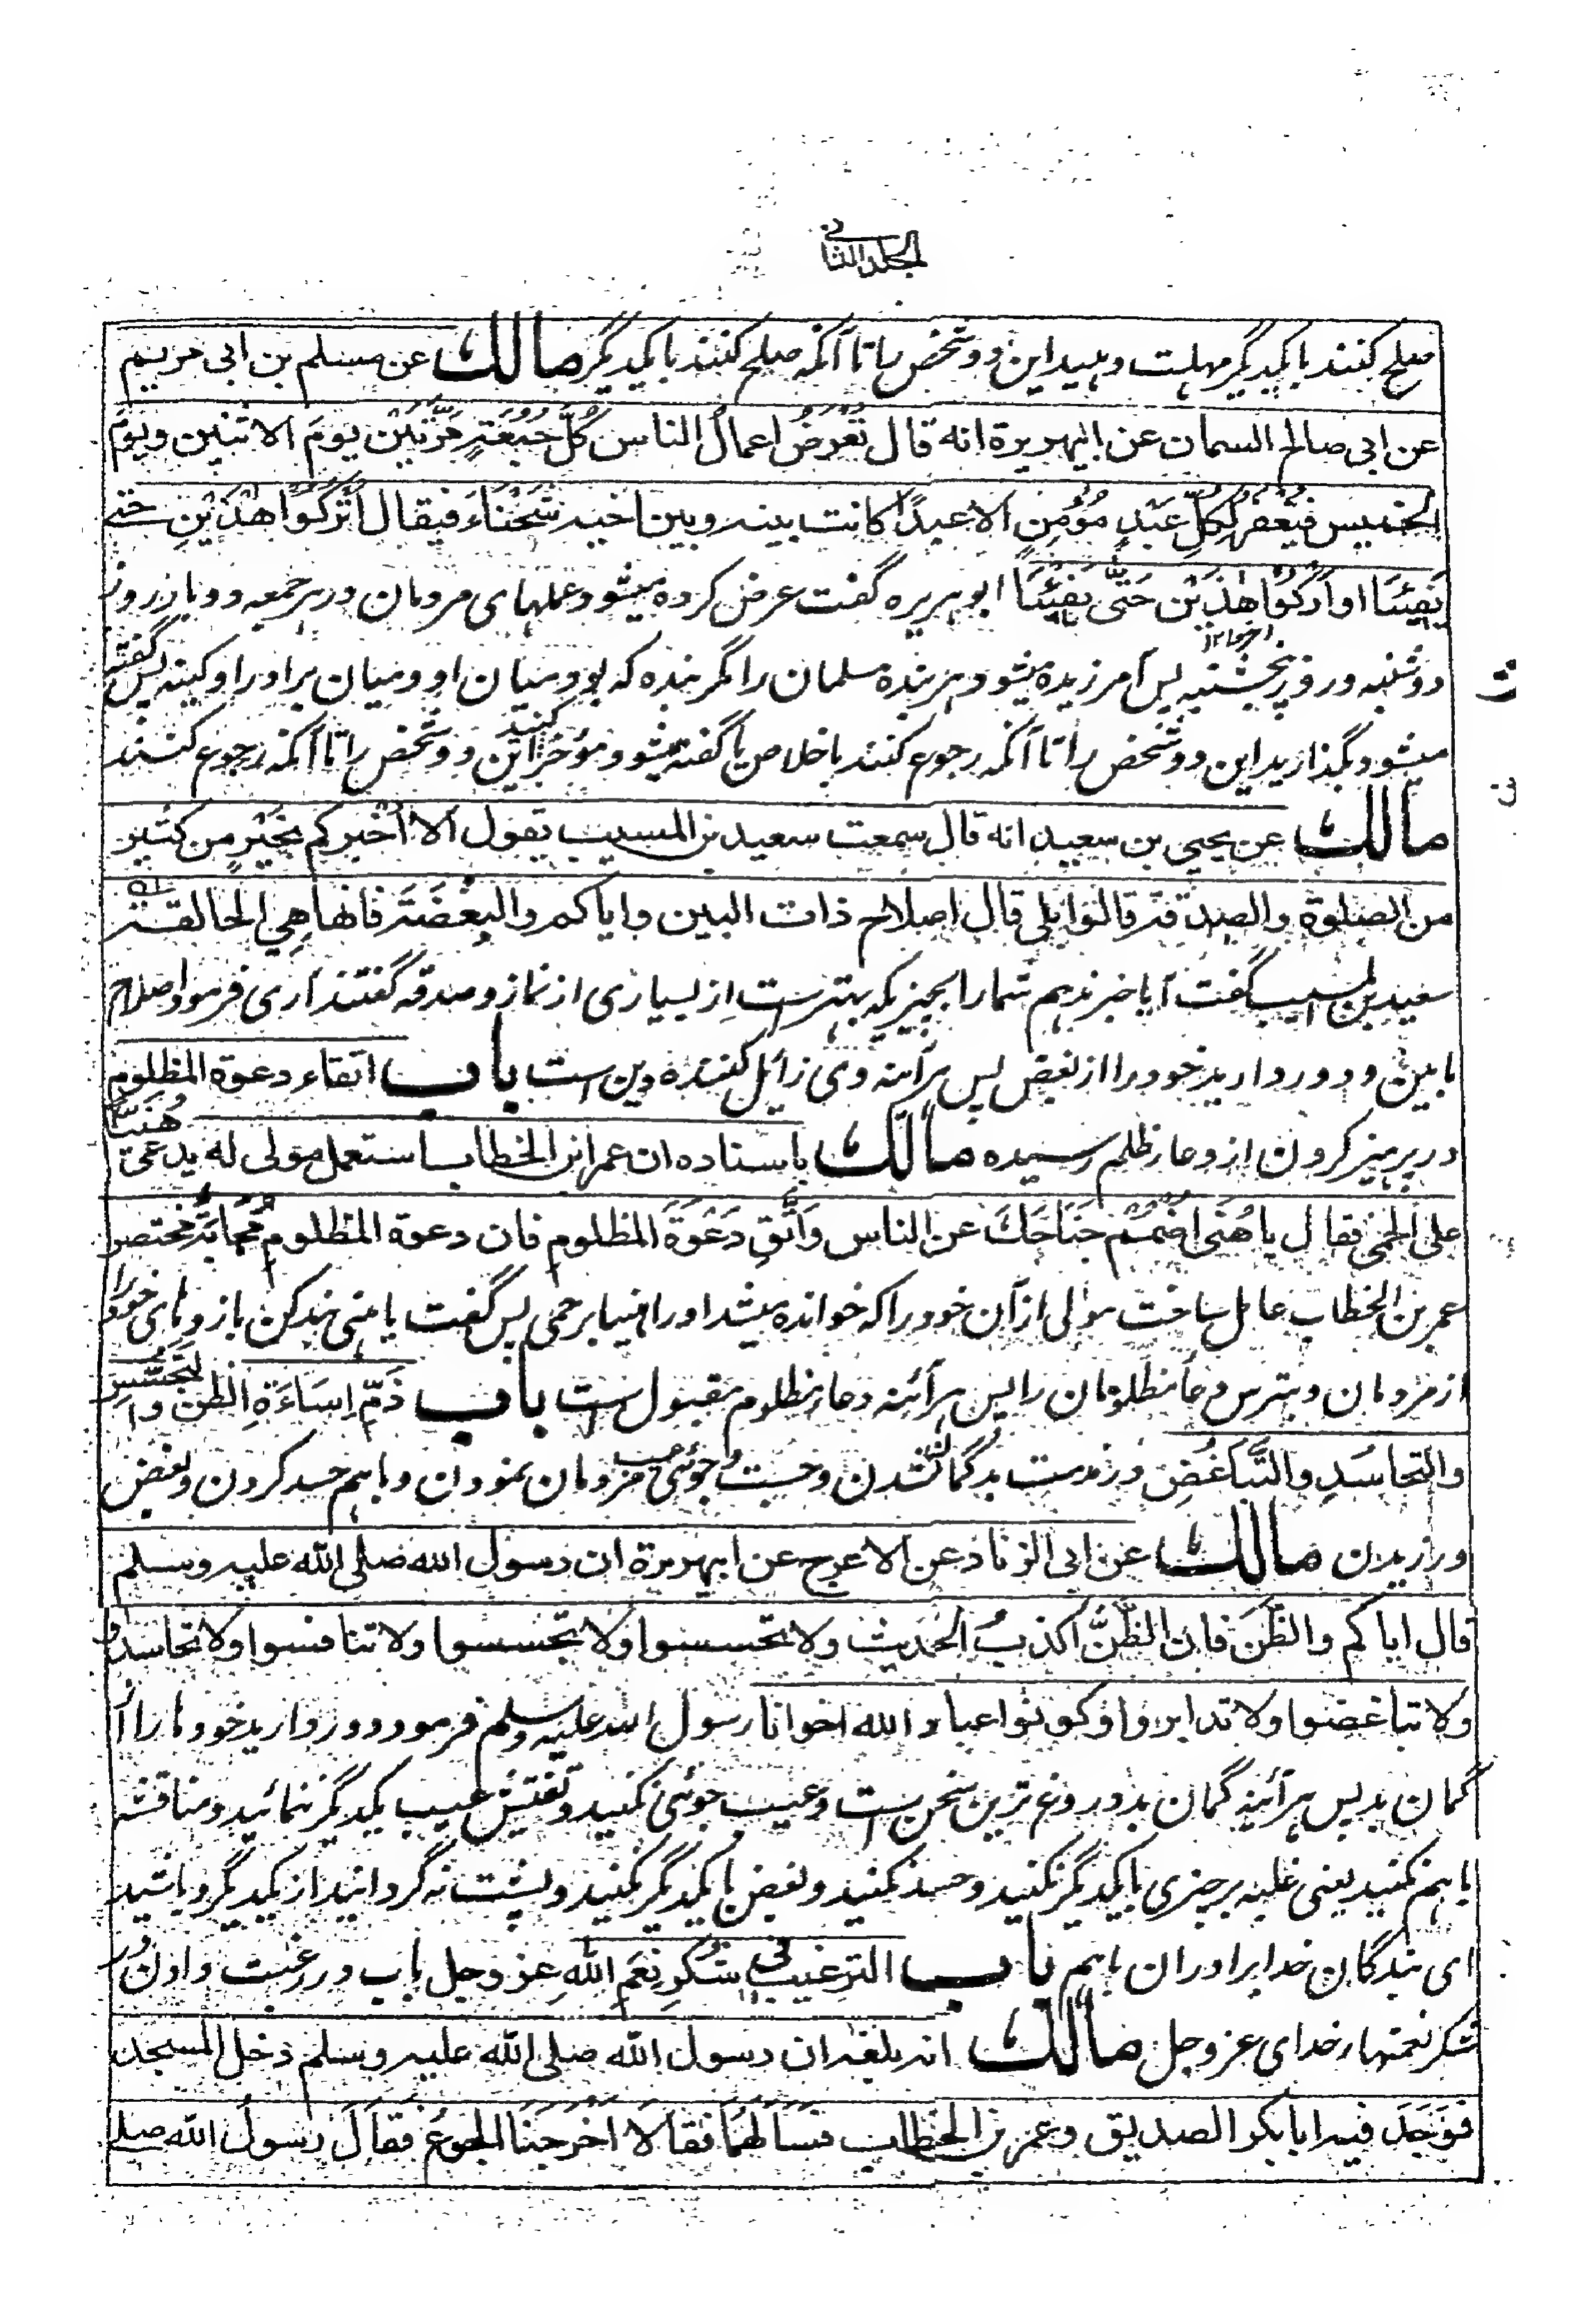 الجلد الثانی
صلح کنند با یکدیگر مهلت دهید این دو شخص را تا آنکه صلح کنند با یکدیگر مالك عن مسلم بن ابی مریم
عن ابی صالح السمان عن ابیهریرة انه قال تُعْرَضُ اعمالُ الناس كُلَّ جُمُعَةٍ مَرَّتَيْنِ يومَ الاثنين ويومَ
الخميس فيُغْفَرُ لِكُلِّ عَبْدٍ مُؤْمِنٍ الا عبدًا كانت بينه وبين اخيه شَحْنَاءُ فيقال اُتْرُكُوْا هٰذَيْنِ حتى
يَفِيْئَا او اُرْكُوْا هٰذَيْنِ حَتّٰى يَفِيْئَا ابو هریره گفت عرض کرده میشود عملهای مردمان در هر جمعه دو بار روز
دوشنبه و روز پنجشنبه پس آمرزیده میشود هر بنده مسلمان را مگر بنده که بود میان او و میان برادر او کینه پس گفته
میشود بگذارید این دو شخص را تا آنکه رجوع کنند باخلاص یا گفته میشود مؤخر کنید این دو شخص را تا آنکه رجوع کنند
مالك عن يحيى بن سعيد انه قال سمعت سعيد بن المسيب يقول الا اُخْبِرُكم بخَيْرٍ من كثير
من الصلوة والصدقة قالوا بلى قال اصلاح ذات البين واياكم والبِغْضَةَ فانها هِي الحالقة
سعید بن المسیب گفت آیا خبر ندهم شمارا بچیزیکه بهترست از بسیاری از نماز و صدقه گفتند آری فرمود اصلاح
ما بین و دور دارید خود را از بغض پس هرآئنه وی زائل کننده دین است باب اتقاء دعوة المظلوم
در پرهیز کردن از دعای ظلم رسیده مالك باسناده ان عمر ابن الخطاب استعمل مولى له يدعى هُنَيًّا
على الحمى فقال يا هُنَى اضْمُمْ جَنَاحَكَ عن الناس وَاتَّقِ دَعْوَةَ المظلومِ فان دعوة المظلومِ مُجَابَةٌ مختصر
عمر بن الخطاب عامل ساخت مولی از آن خود را که خوانده میشد او را هنیا بر حمی پس گفت یا هنی بند کن بازوهای خود را
از مردمان و بترس دعا مظلومان را پس هرآئنه دعاء مظلوم مقبول است باب ذَمِّ اِسَاءَةِ الظن والتجسس
والتحاسُدِ والتَّبَاغُضِ در مذمت بدگمان شدن و جست و جوئی عیب مردمان نمودن و باهم حسد کردن و بغض
ورزیدن مالك عن ابى الزناد عن الاعرج عن ابيهريرة ان رسول الله صلى الله عليه وسلم
قال اياكم والظَّنَ فان الظَّنَّ اكذبُ الحديث ولا تحسسوا ولا تجسسوا ولا تنافسوا ولا تحاسدوا
ولا تباغضوا ولا تدابروا وكونوا عباد الله اخوانا رسول الله علیه وسلم فرمود دور دارید خودها را از
گمان بد پس هرآئینه گمان بد دروغ ترین سخن است و عیب جوئی نکنید و تفتیش عیب یکدیگر ننمائید و مناقشه
باهم نکنید یعنی غلبه بر چیزی با یکدیگر نکنید و حسد نکنید و بغض با یکدیگر نکنید و پشت نه گردانید از یکدیگر و باشید
ای بندگان خدا برادران باهم باب الترغيب فى شُكْرِ نِعَمِ اللهِ عز وجل باب در رغبت دادن در
شکر نعمتهاء خدای عز وجل مالك انه بلغه ان رسول الله صلى الله عليه وسلم دخل المسجد
فَوَجَدَ فيه ابا بكر الصديق وعمر بن الخطاب فسَاَلَهُمَا فقالا اَخْرَجَنَا الجوعُ فقَالَ رسول الله صلے